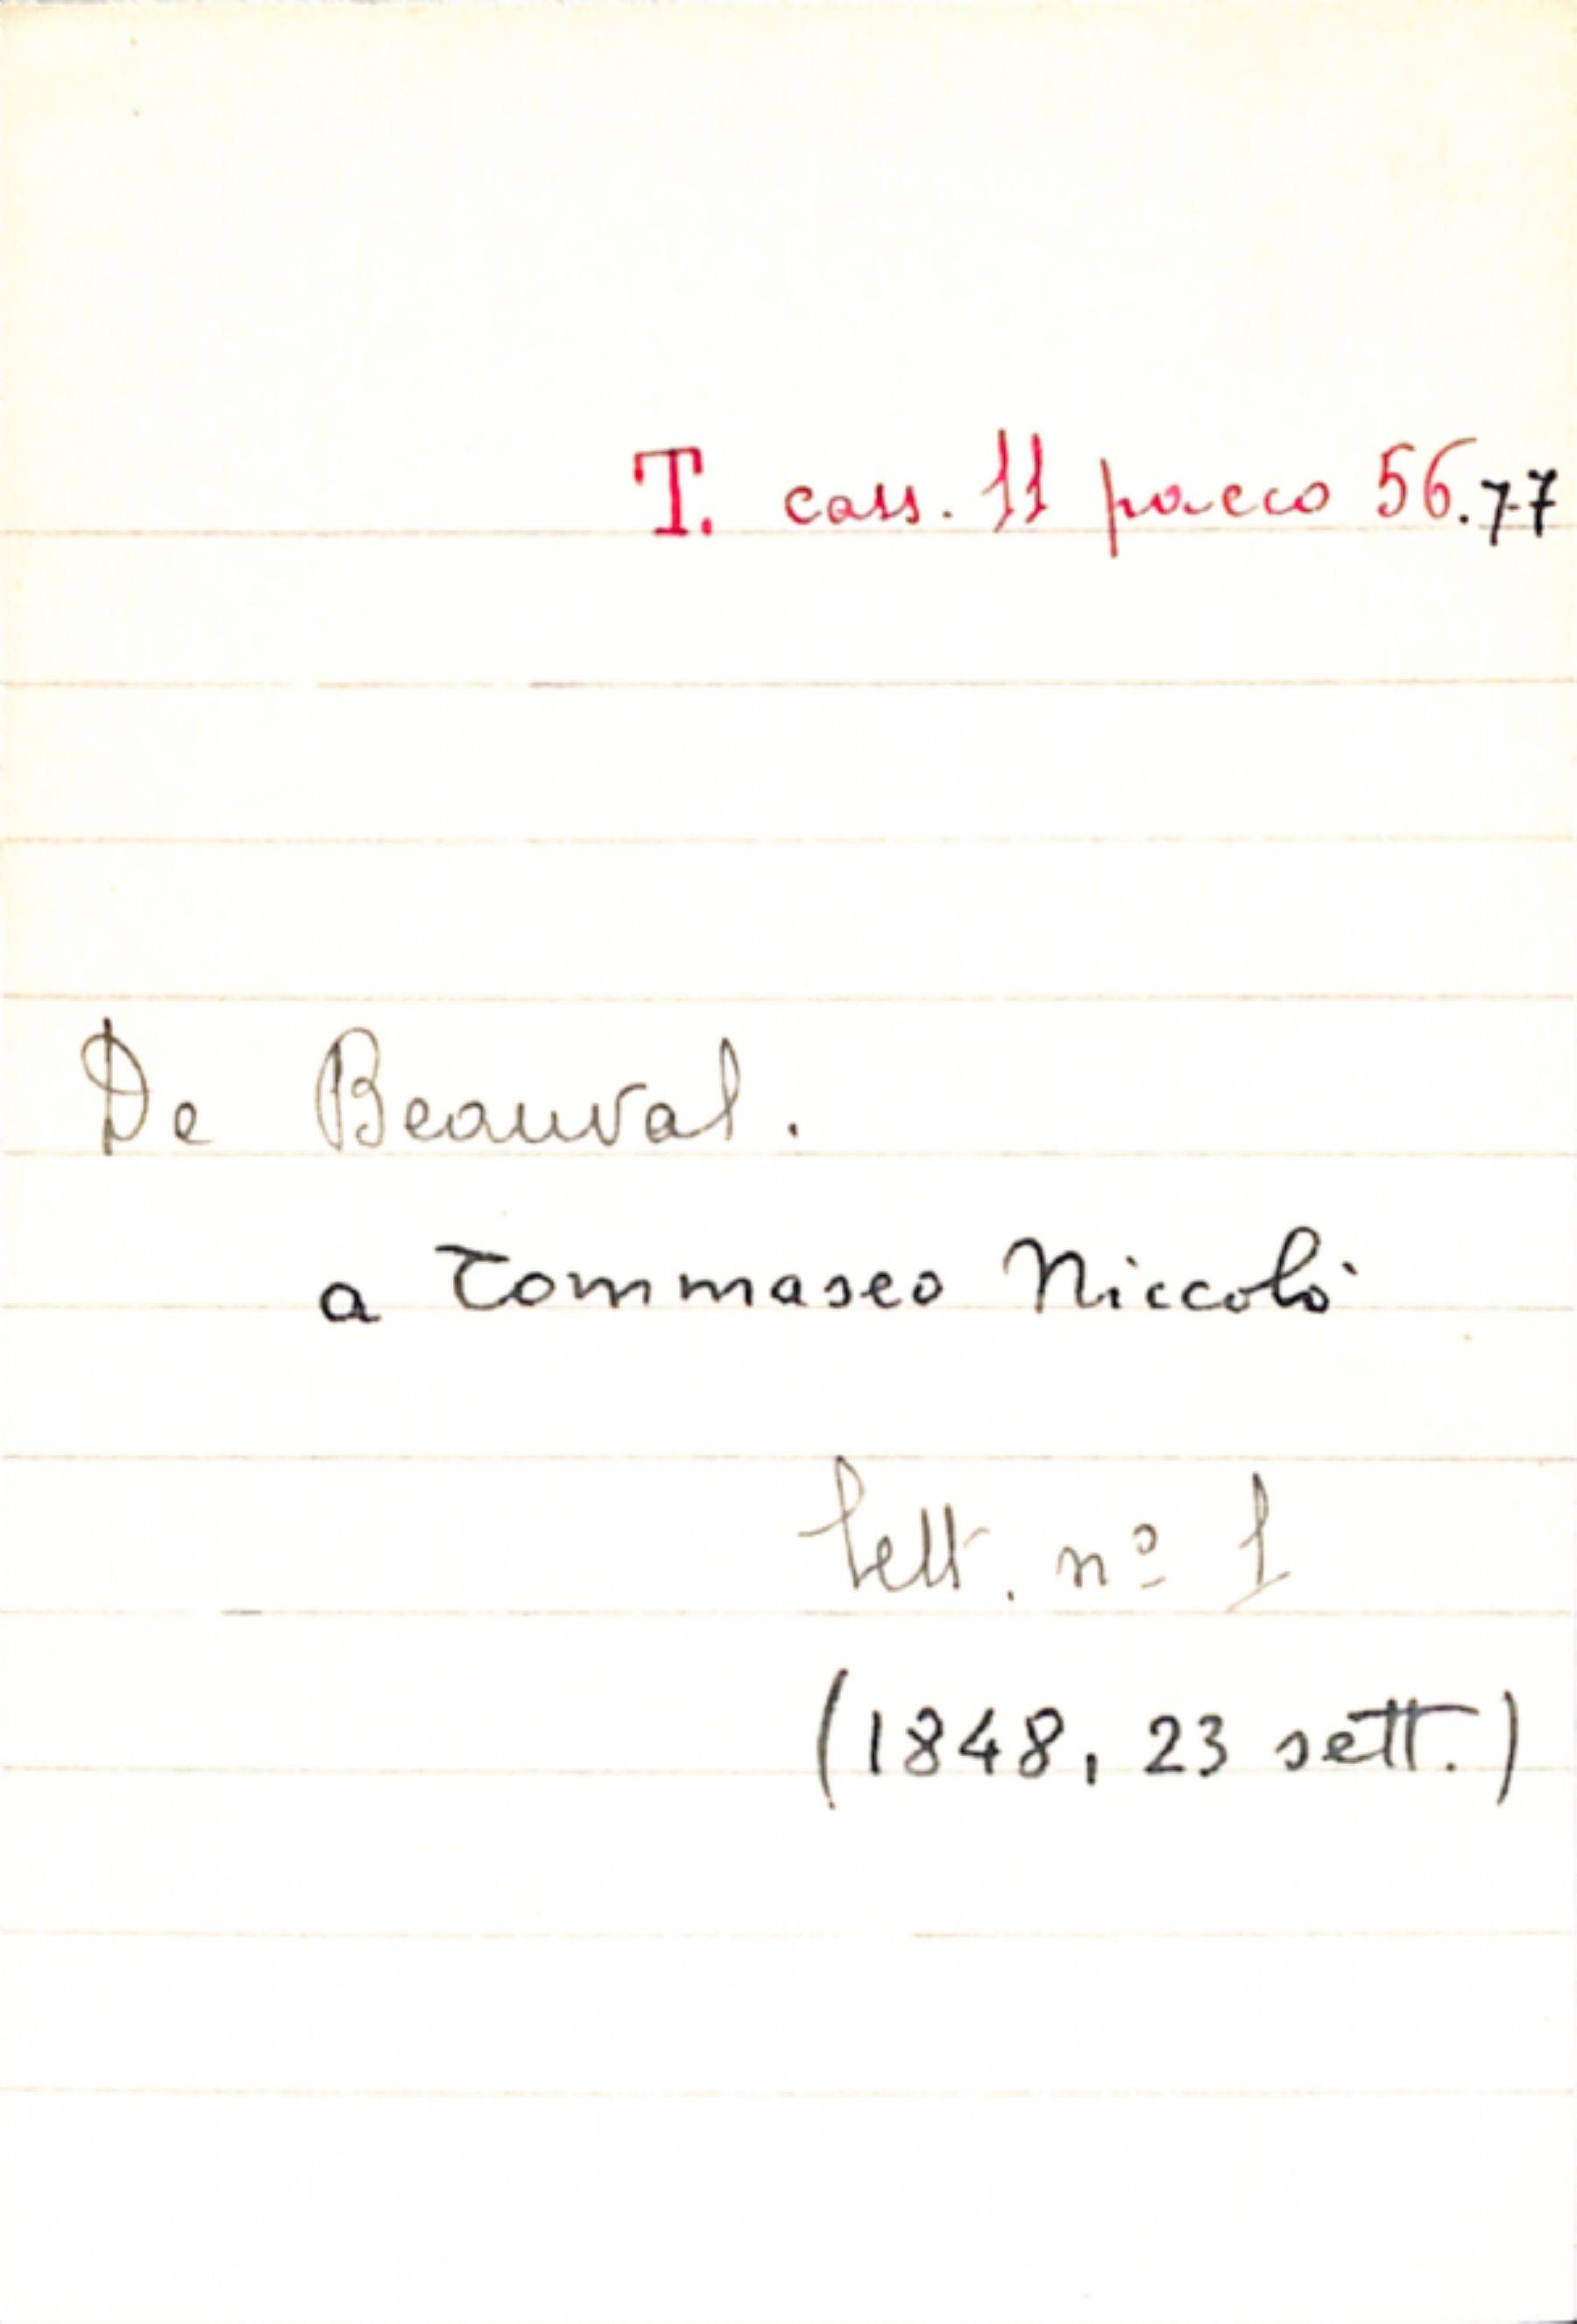 T. cass. 11 pacco 56.77
De Beauval.
a Tommaseo Niccolò
lett. nº 1
(1848, 23 sett.)